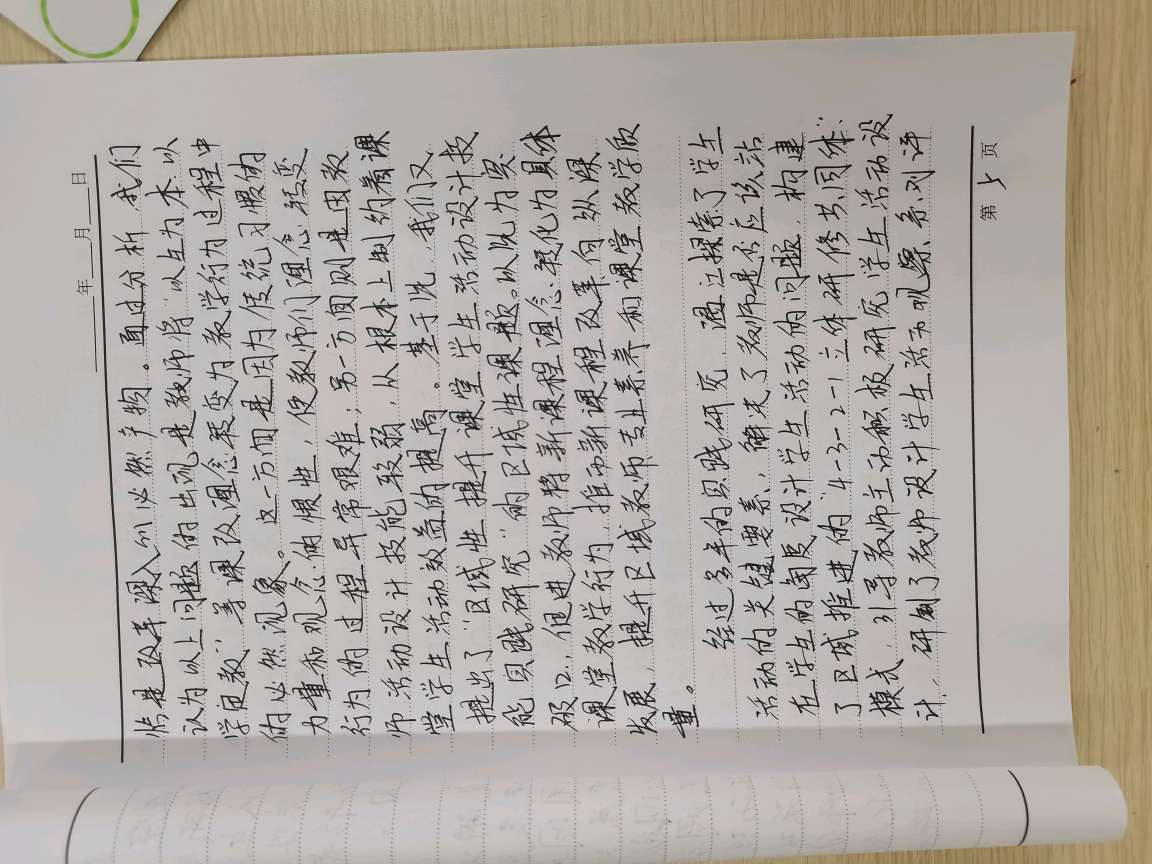 年 月 日
恰是改革深入的必然产物。通过分析,我们
认为以上问题的出现是教师将“以生为本、以
学定教”等课改理念转变为教学行为过程中
的必然现象。这一方面是因为传统习惯的
力量和观念的惯性,使教师们理念转变
行为的过程异常艰难;另一方面则是因教
师活动设计技能较弱,从根本上制约着课
堂学生活动效益的提高。基于此,我们又
提出了“区域性提升课堂学生活动设计技
能实践研究”的区域性课题。以此为突
破口,促进教师将新课程理念转化为具体
课堂教学行为,推动新课程改革向纵深
发展,提升区域教师专业素养和课堂教学质
量。
经过多年的实践研究,通过探索了学生
活动的关键要素,解决了教师是否应该站
在学生的角度设计学生活动的问题,构建
了区域推进的“4-3-2-1立体研修共同体”
模式,引导教师主动积极研究学生活动设
计,研制了教师设计学生活动观察系列评
第 5 页